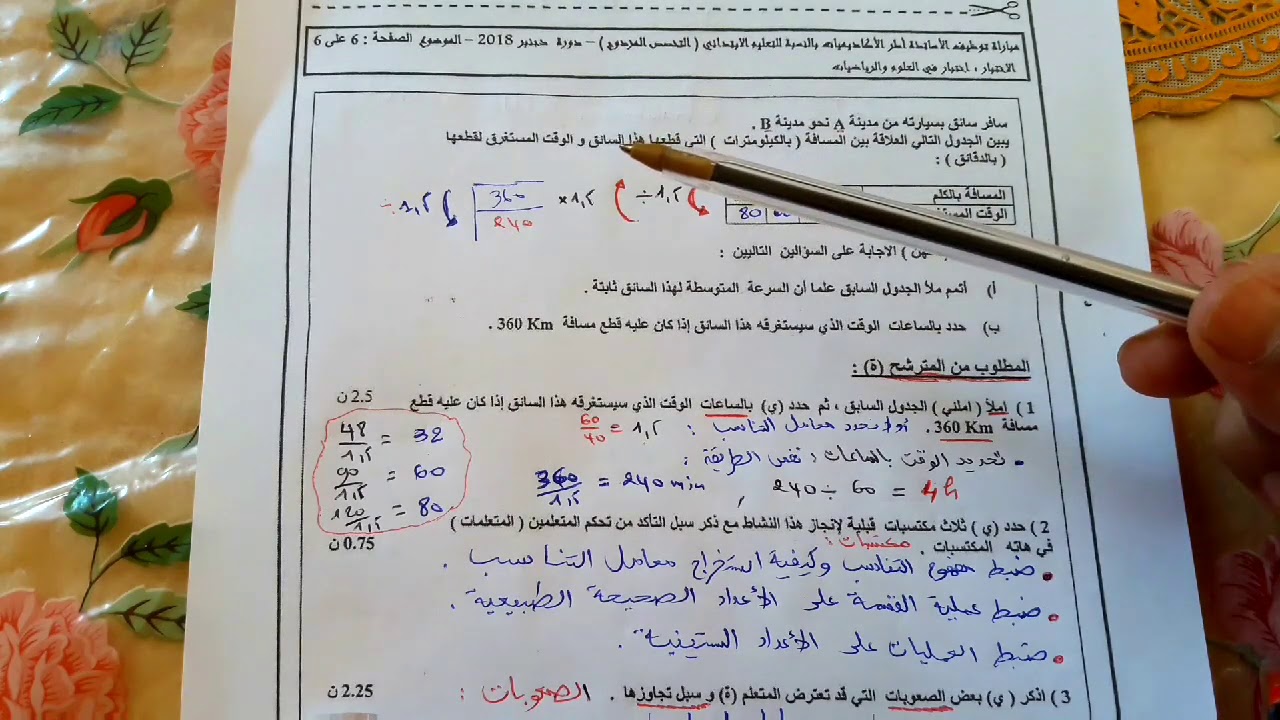 مباراة توظيف الأساتذة أطر الأكاديميات بالنسبة للتعليم الابتدائي ( التخصص المزدوج ) – دورة دجنبر 2018 – الموضوع الصفحة : 6 على 6
الاختبار : اختبار في العلوم والرياضيات
سافر سائق بسيارته من مدينة A نحو مدينة B .
يبين الجدول التالي العلاقة بين المسافة ( بالكيلومترات ) التي قطعها هذا السائق و الوقت المستغرق لقطعها
( بالدقائق ) :
المسافة بالكلم
الوقت المستغ
80 60
÷ 1,2
× 1,2
360
240
÷ 1,2
الاجابة على السؤالين التاليين :
أ) أتمم ملأ الجدول السابق علما أن السرعة المتوسطة لهذا السائق ثابتة .
ب) حدد بالساعات الوقت الذي سيستغرقه هذا السائق إذا كان عليه قطع مسافة 360 Km .
المطلوب من المترشح (ة) :
1 ) املأ ( املئي ) الجدول السابق ، ثم حدد (ي) بالساعات الوقت الذي سيستغرقه هذا السائق إذا كان عليه قطع
2.5 ن
مسافة 360 Km .
أولا نحدد معامل التناسب : 1,2 = 60/40
• تحديد الوقت بالساعات : نفس الطريقة :
360/1,2 = 240 min , 240 ÷ 60 = 4h
48/1,2 = 32
90/1,2 = 60
120/1,2 = 80
2 ) حدد (ي ) ثلاث مكتسبات قبلية لإنجاز هذا النشاط مع ذكر سبل التأكد من تحكم المتعلمين ( المتعلمات )
في هاته المكتسبات . مكتسبات :
0.75 ن
• ضبط مفهوم التناسب وكيفية استخراج معامل التناسب .
• ضبط عملية القسمة على الأعداد الصحيحة الطبيعية .
• ضبط العمليات على الأعداد الستينية .
3 ) اذكر ( ي) بعض الصعوبات التي قد تعترض المتعلم (ة) و سبل تجاوزها . الصعوبات :
2.25 ن